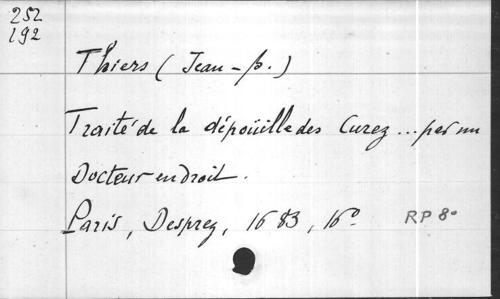 252
192
Thiers (Jean-B.)
Traité de la dépoüille des Curez ... par un
Docteur en droit.
Paris, Desprez, 1683, 16°
RP 8°